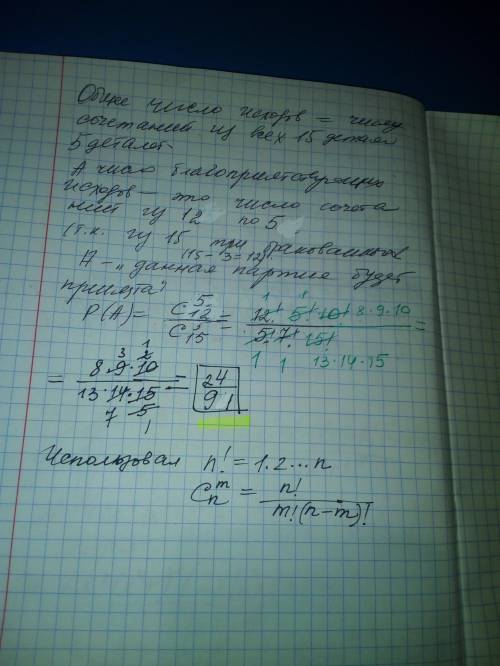 Общее число исходов = числу
сочетаний из всех 15 деталей
5 деталей.
А число благоприятствующих
исходов — это число сочета
ний из 12 по 5
(т.к. из 15 три бракованных
15 - 3 = 12).
A - „данная партия будет
принята"
P(A) = C 5 12 / C 5 15 = 12! 5! 10! 8·9·10 / 5! 7! 15! 13·14·15 =
= 8·9·10 / 13·14·15 = 24 / 91
Использовал n! = 1·2...n
C m n = n! / m!(n-m)!